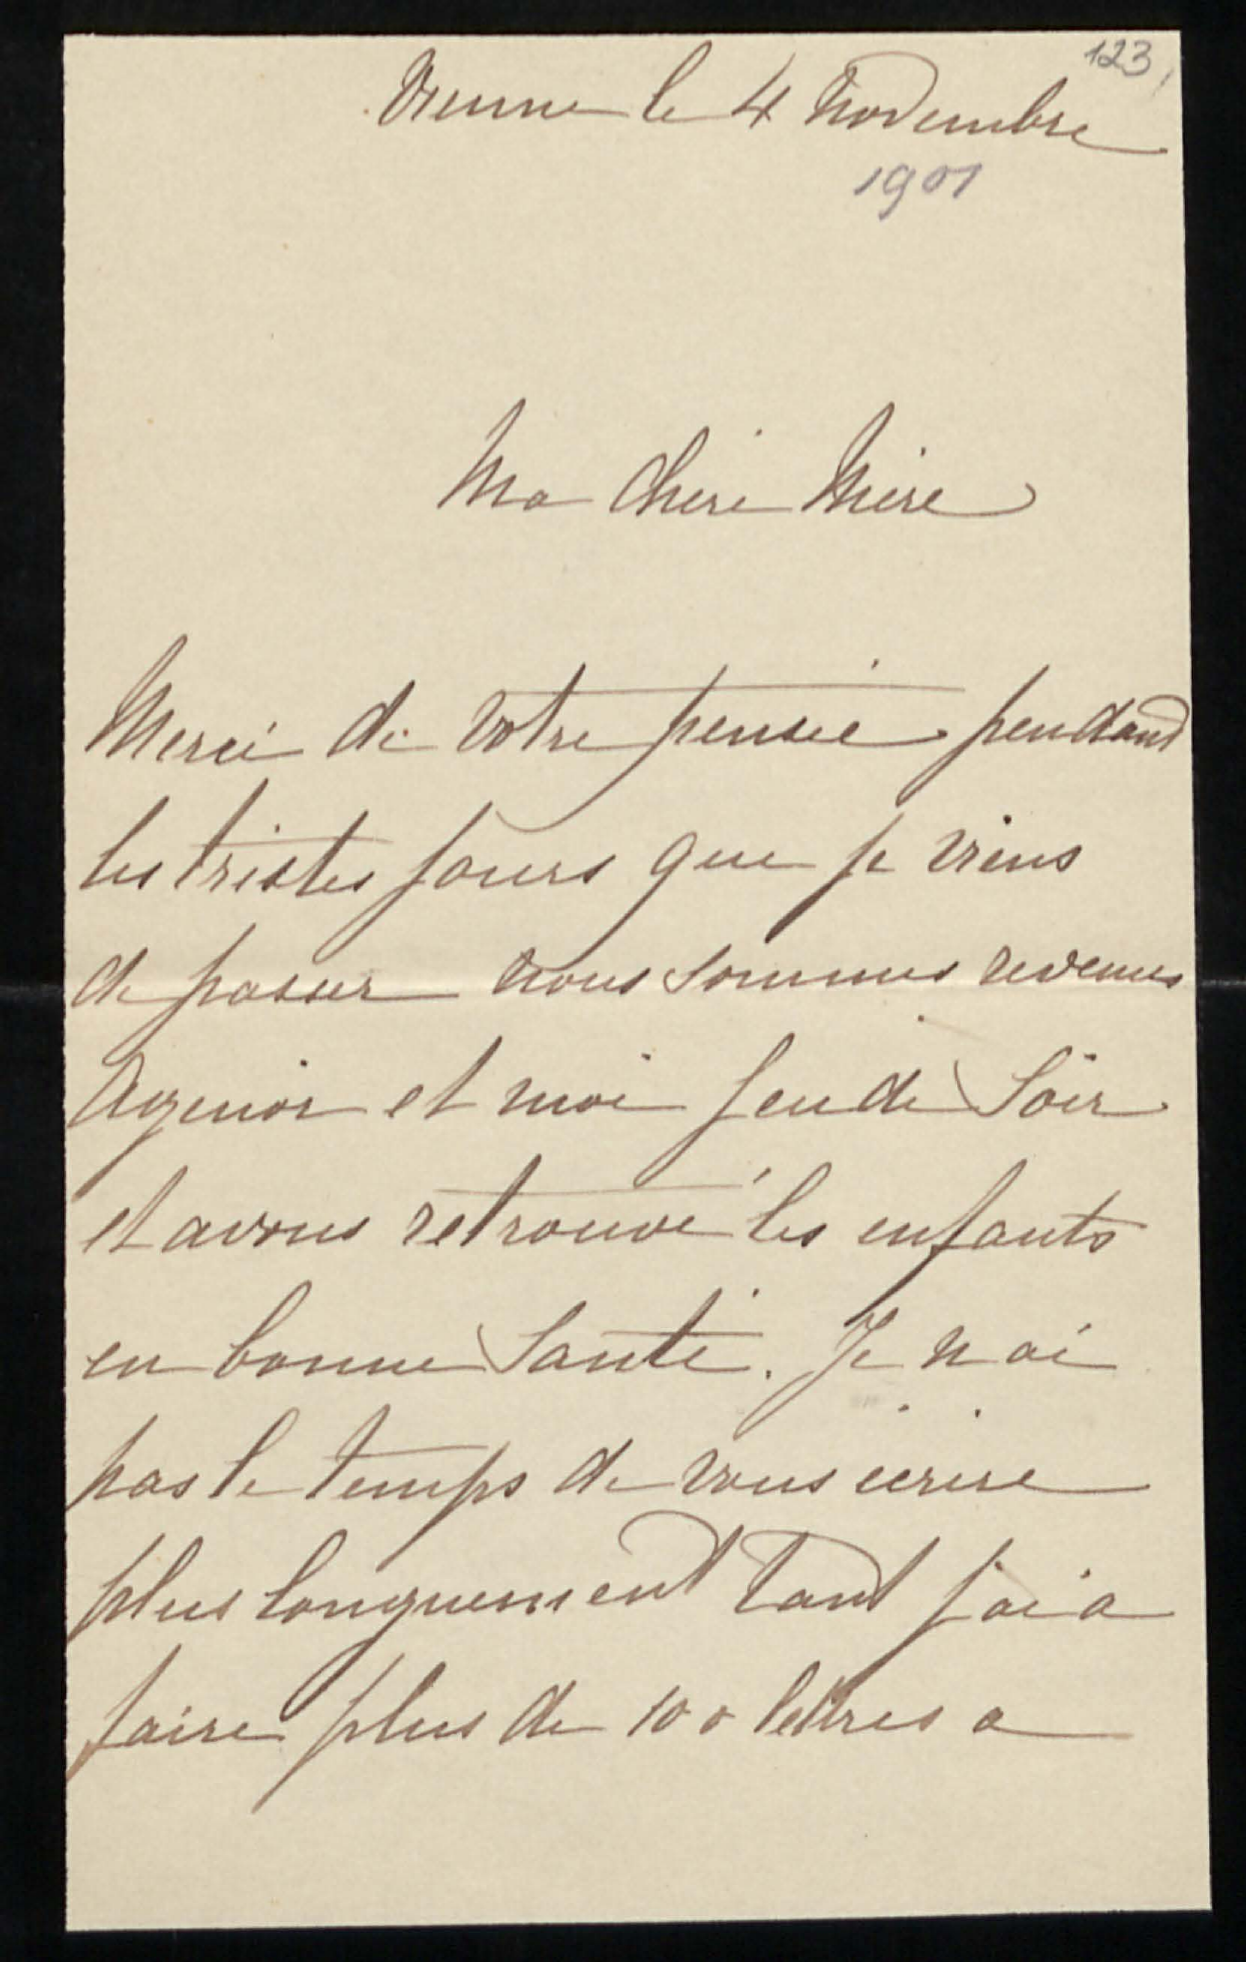 123
Vienne le 4 Novembre
1901
Ma chère Mère
Merci de votre pensée pendant
les tristes jours que je viens
de passer nous sommes revenus
Agenor et moi jeudi soir
et avons retrouvé les enfants
en bonne santé. Je n ai
pas le temps de vous écrire
plus longuement tant j'ai a
faire plus de 100 lettres a